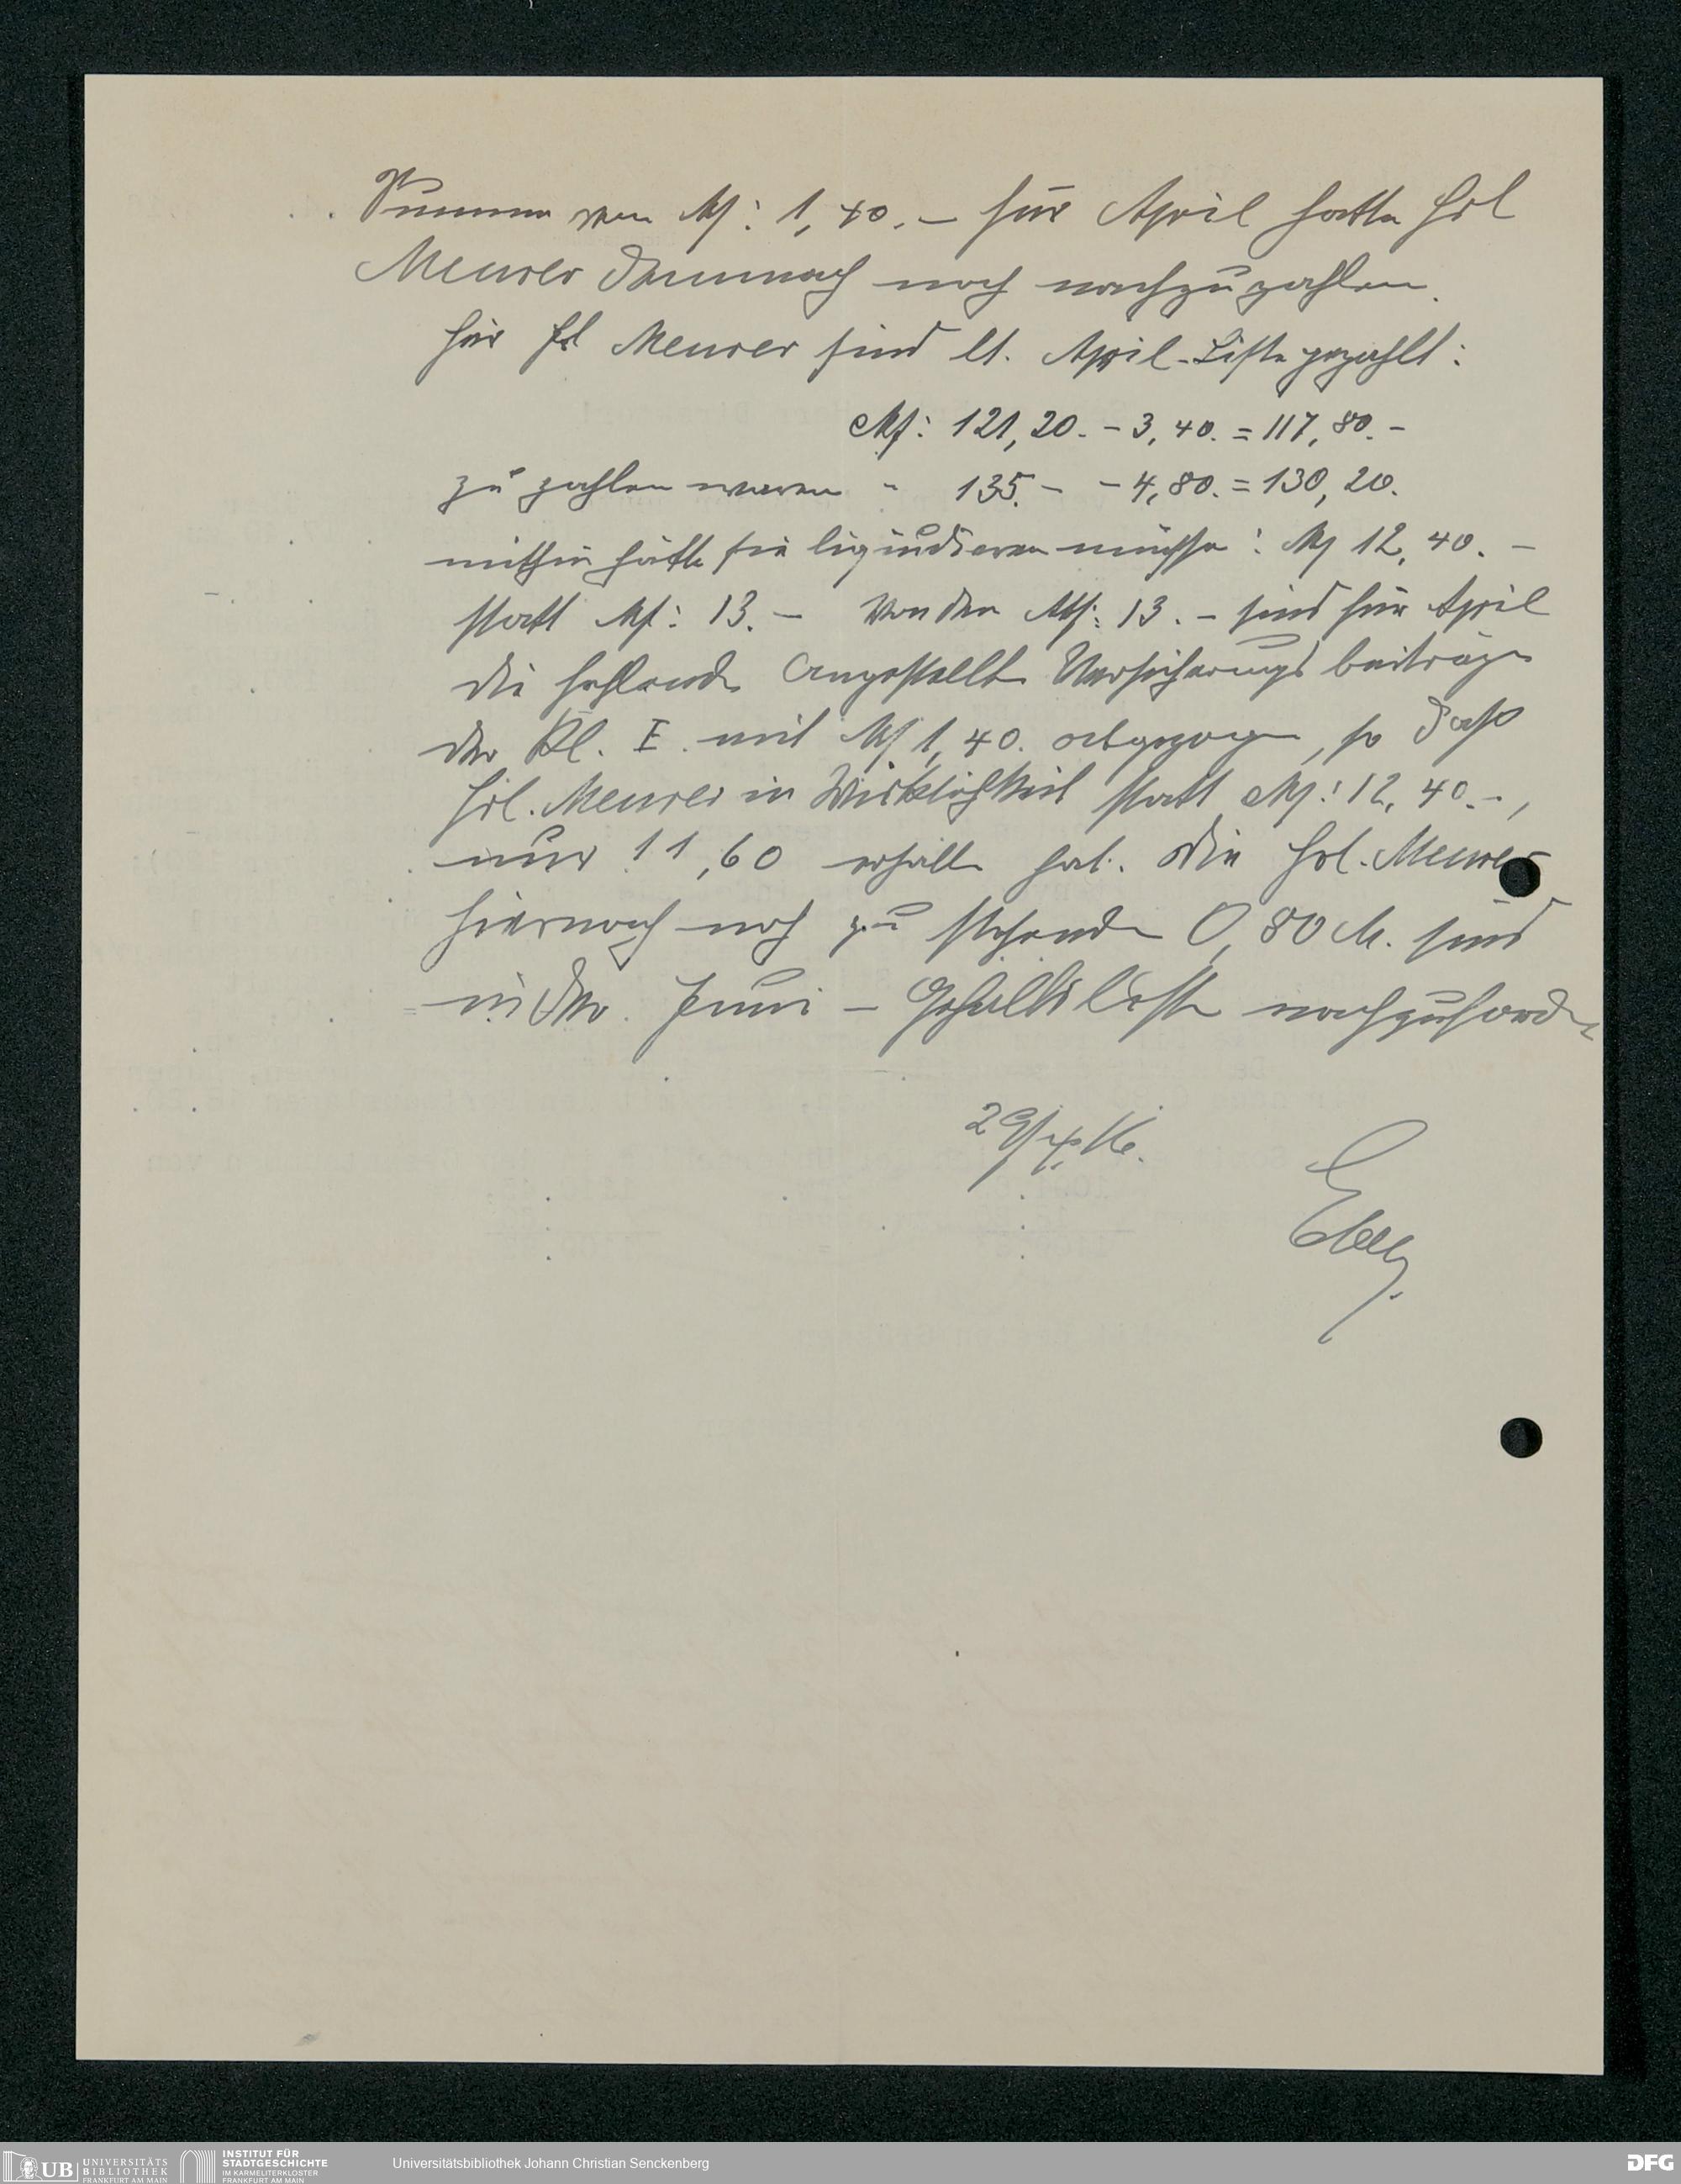 Summe von M: 1,40.– für April hatte Frl
Meurer demnach noch nachzuzahlen.
Für Frl Meurer sind lt. April-Liste gezahlt:
Mk: 121,20.– 3,40. = 117,80.–
zu zahlen waren " 135.– – 4,80. = 130,20.
mithin hätte sie liquidieren müssen: M 12,40.–
statt Mk: 13.– Von den Mk: 13.– sind für April
die fehlenden Angestellten Versicherungsbeiträge
der Kl. E. mit M 1,40. abgezogen, so daß
Frl. Meurer in Wirklichkeit statt Mk: 12,40.–,
nur 11,60 erhalten hat. Die Frl. Meurer
hiernach noch zu stehenden 0,80 M. sind
in der Juni – Gehaltsliste nachzufordern
16.
UB UNIVERSITÄTS
BIBLIOTHEK
FRANKFURT AM MAIN
INSTITUT FÜR
STADTGESCHICHTE
IM KARMELITERKLOSTER
FRANKFURT AM MAIN
Universitätsbibliothek Johann Christian Senckenberg
DFG